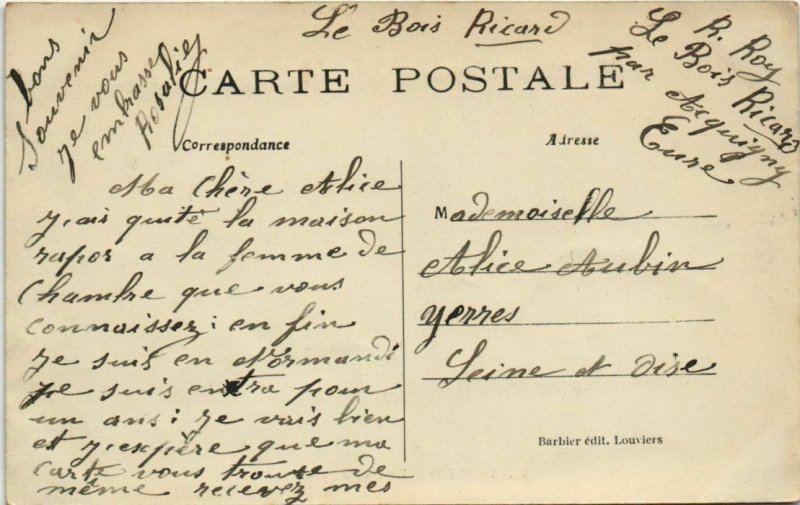 Le Bois Ricard
R. Roy
Le Bois Ricard
par Acquigny
Eure
bons
Souvenir
Je vous
embrasse
Rosalie
CARTE POSTALE
Correspondance
Adresse
Ma Chère Alice
J,ais quité la maison
rapor a la femme de
Chambre que vous
connaissez : en fin
Je suis en Normandi
Je suis entra pour
un ans : Je vais bien
est J,expère que ma
carte vous trouse de
même recevez mes
Mademoiselle
Alice Aubin
Yerres
Seine et Oise
Barbier édit. Louviers